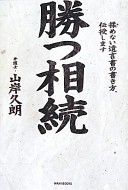 揉めない遺言書の書き方、
伝授します
勝つ相続
弁護士
山岸久朗
WANI BOOKS